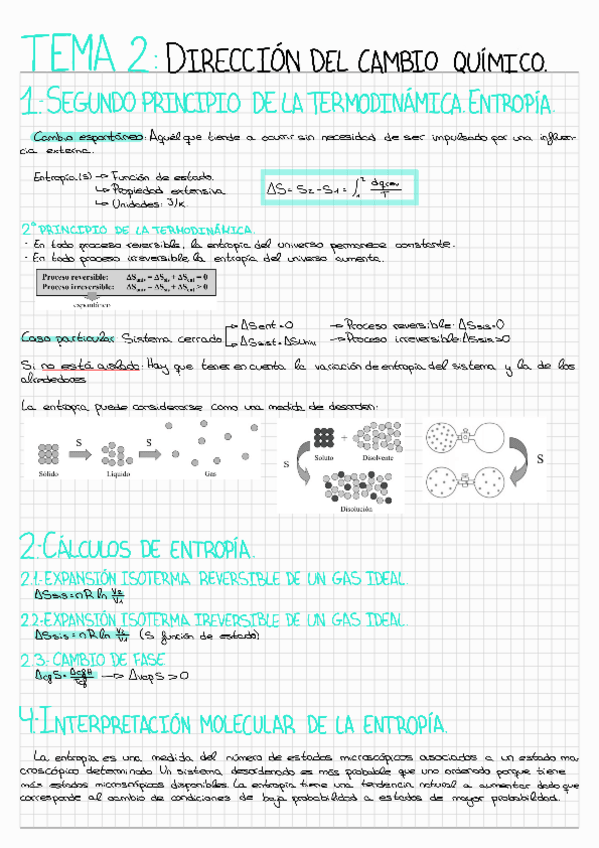 TEMA 2: DIRECCIÓN DEL CAMBIO QUÍMICO.
1.-SEGUNDO PRINCIPIO DE LA TERMODINÁMICA. ENTROPÍA.
Cambio espontáneo: Aquél que tiende a ocurrir sin necesidad de ser impulsado por una influen-
cia externa.
Entropía (s) → Función de estado.
↳ Propiedad extensiva
↳ Unidades: J/K.
ΔS = S2 - S1 = ∫₁² dqrev/T
2º PRINCIPIO DE LA TERMODINÁMICA.
· En todo proceso reversible, la entropía del universo permanece constante.
· En todo proceso irreversible la entropía del universo aumenta.
Proceso reversible: ΔSuniv = ΔSsis + ΔSent = 0
Proceso irreversible: ΔSuniv = ΔSsis + ΔSent > 0
espontáneo
Caso particular: Sistema cerrado
ΔSent = 0 → Proceso reversible: ΔSsis=0
ΔSsist=ΔSuniv → Proceso irreversible: ΔSsis>0
Si no está aislado: Hay que tener en cuenta la variación de entropía del sistema y la de los
alrededores
La entropía puede considerarse como una medida de desorden:
S S
Sólido Líquido Gas
Soluto + Disolvente
S
Disolución
S
2.-CÁLCULOS DE ENTROPÍA.
2.1.-EXPANSIÓN ISOTERMA REVERSIBLE DE UN GAS IDEAL.
ΔSsis = nR ln V2/V1
2.2.-EXPANSIÓN ISOTERMA IRREVERSIBLE DE UN GAS IDEAL.
ΔSsis = nR ln V2/V1 (S función de estado)
2.3.-CAMBIO DE FASE
ΔcfS = ΔcfH/Tcf → ΔvapS > 0
4.-INTERPRETACIÓN MOLECULAR DE LA ENTROPÍA.
La entropía es una medida del número de estados microscópicos asociados a un estado ma
croscópico determinado. Un sistema desordenado es más probable que uno ordenado porque tiene
más estados microscópicos disponibles. La entropía tiene una tendencia natural a aumentar dado que
corresponde al cambio de condiciones de baja probabilidad a estados de mayor probabilidad.